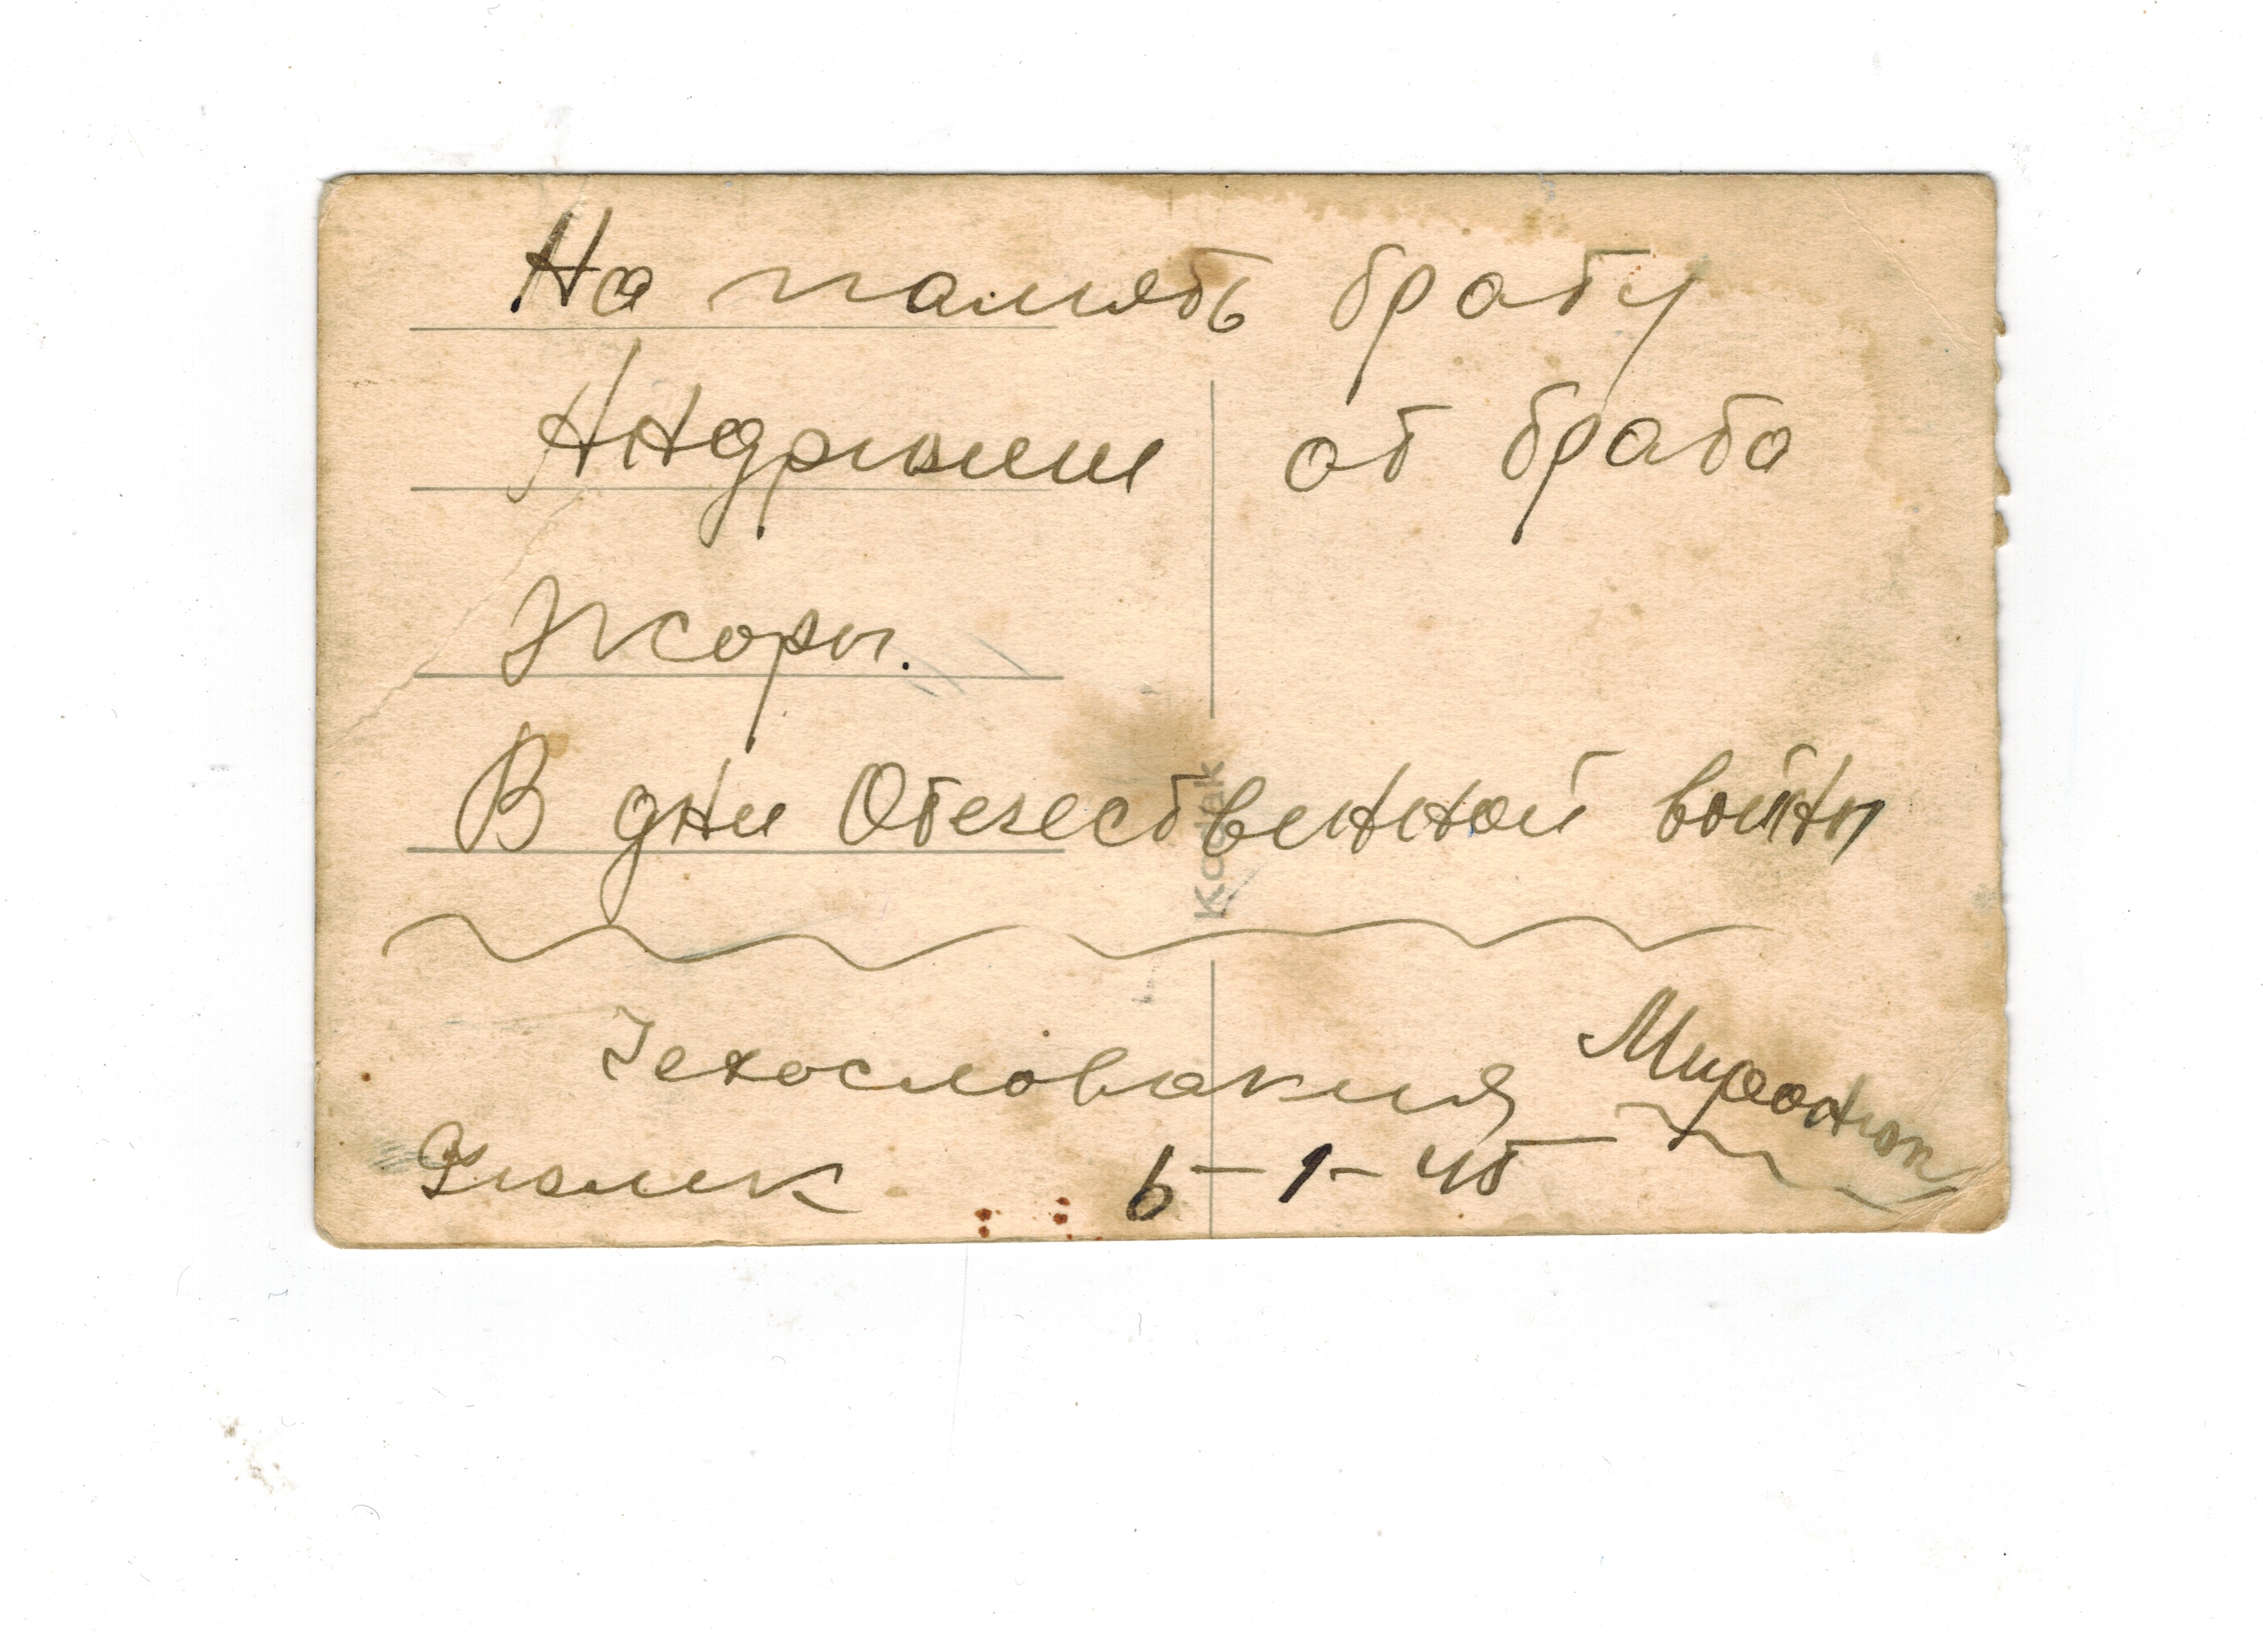 На память брату
Андрюше от брата
Жоры.
В дни Отечественной войны
Kodak
Чехословакия
6-1-45